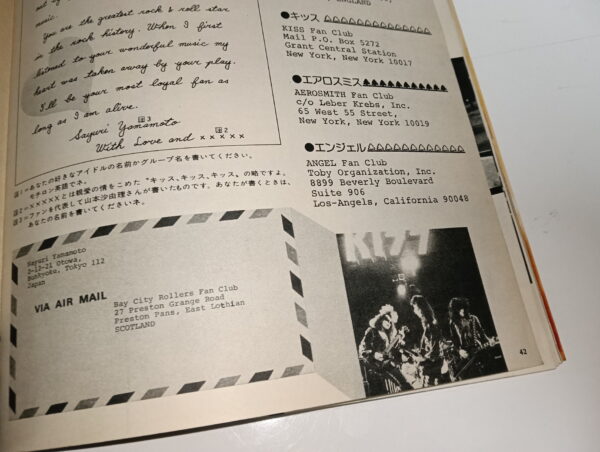 music.
You are the greatest rock & roll star
in the rock history. When I first
listened to your wonderful music my
heart was taken away by your play.
I'll be your most loyal fan as
long as I am alive.
注3
Sayuri Yamamoto
注2
With Love and ×××××
注1=あなたの好きなアイドルの名前かグループ名を書いてください。
モチロン英語でネ。
注2=×××××とは親愛の情をこめた“キッス、キッス、キッス。の略ですよ。
注3=ファンを代表して山本沙由理さんが書いたものです。あなたが書くときは、
あなたの名前を書いてくださいネ。
Sayuri Yamamoto
2-12-21 Otowa,
Bunkyoku, Tokyo 112
Japan
VIA AIR MAIL
Bay City Rollers Fan Club
27 Preston Grange Road
Preston Pans, East Lothian
SCOTLAND
ENGLAND
●キッス
KISS Fan Club
Mail P.O. Box 5272
Grant Central Station
New York, New York 10017
●エアロスミス
AEROSMITH Fan Club
c/o Leber Krebs, Inc.
65 West 55 Street,
New York, New York 10019
●エンジェル
ANGEL Fan Club
Toby Organization, Inc.
8899 Beverly Boulevard
Suite 906
Los-Angels, California 90048
KISS
42